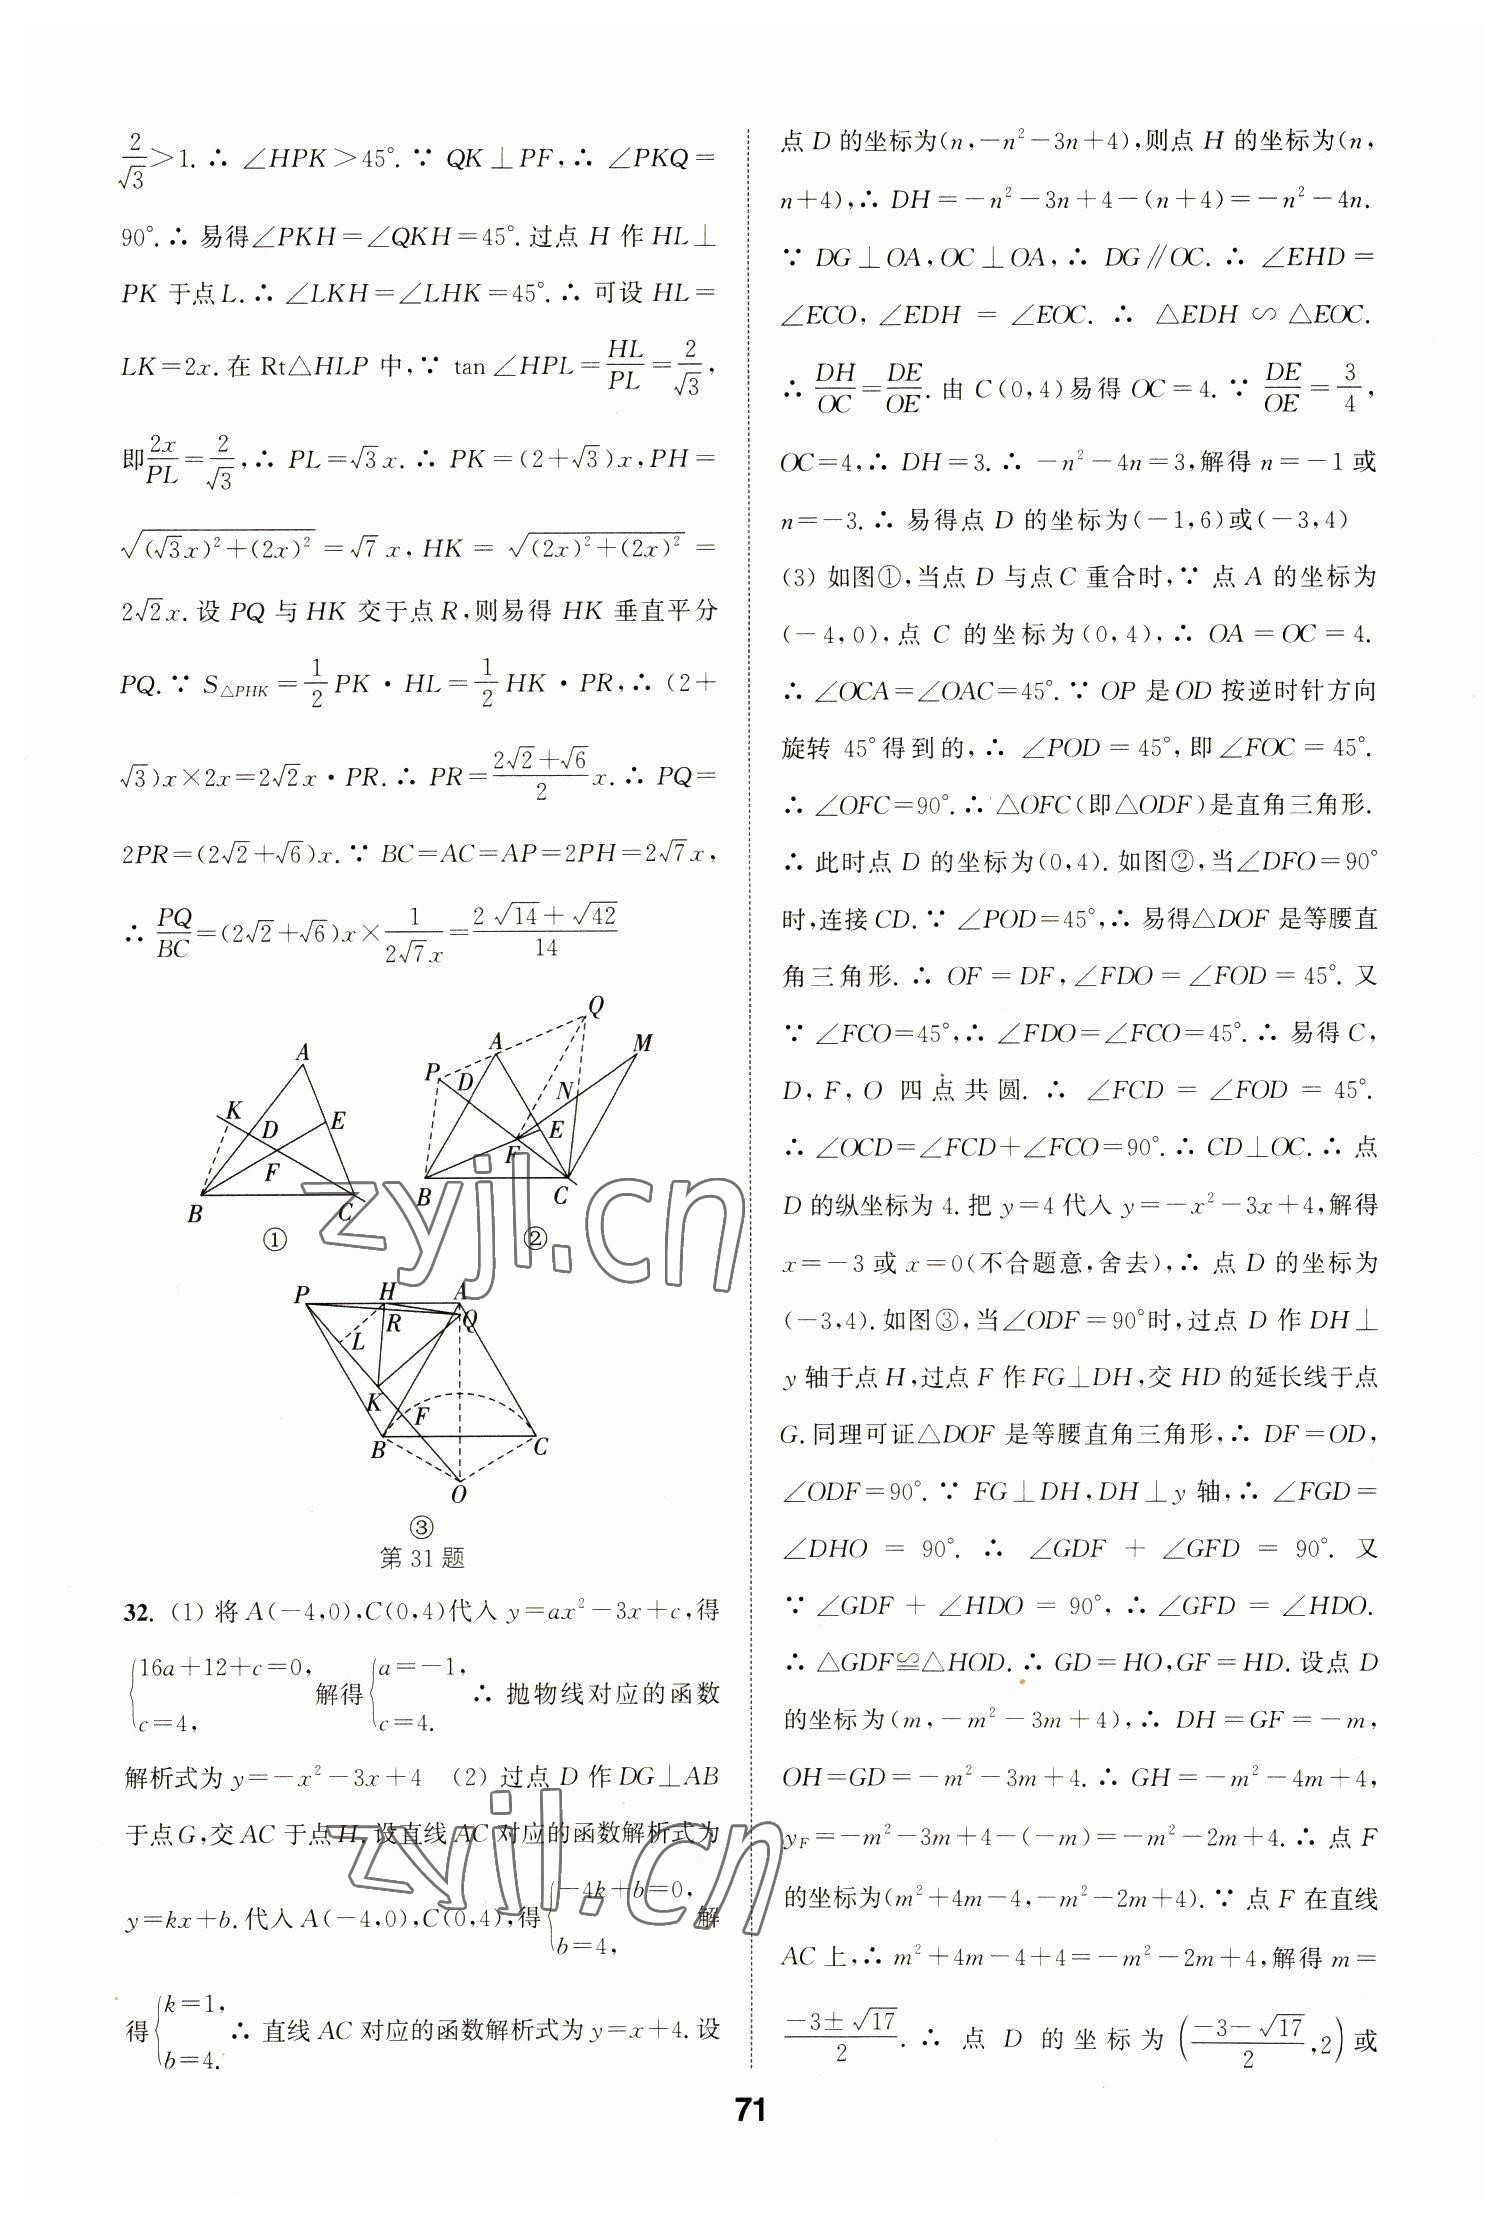 $\frac{2}{\sqrt{3}}$>1.∴ ∠HPK>45°.∵ QK⊥PF,∴ ∠PKQ=
90°.∴ 易得∠PKH=∠QKH=45°.过点 H 作 HL⊥
PK 于点L.∴ ∠LKH=∠LHK=45°.∴ 可设 HL=
LK=2x.在 Rt△HLP 中,∵ tan∠HPL=$\frac{HL}{PL}$=$\frac{2}{\sqrt{3}}$,
即$\frac{2x}{PL}$=$\frac{2}{\sqrt{3}}$,∴ PL=$\sqrt{3}$x.∴ PK=(2+$\sqrt{3}$)x,PH=
$\sqrt{(\sqrt{3}x)^2+(2x)^2}$=$\sqrt{7}$x,HK=$\sqrt{(2x)^2+(2x)^2}$=
2$\sqrt{2}$x.设 PQ 与 HK 交于点R,则易得 HK 垂直平分
PQ.∵ $S_{△PHK}$=$\frac{1}{2}$PK·HL=$\frac{1}{2}$HK·PR,∴ (2+
$\sqrt{3}$)x×2x=2$\sqrt{2}$x·PR.∴ PR=$\frac{2\sqrt{2}+\sqrt{6}}{2}$x.∴ PQ=
2PR=(2$\sqrt{2}$+$\sqrt{6}$)x.∵ BC=AC=AP=2PH=2$\sqrt{7}$x,
∴ $\frac{PQ}{BC}$=(2$\sqrt{2}$+$\sqrt{6}$)x×$\frac{1}{2\sqrt{7}x}$=$\frac{2\sqrt{14}+\sqrt{42}}{14}$
A K D E F B C
①
Q A M P D N F E B C
②
P H A R Q L K F B C O
③
第 31 题
32. (1) 将 A(-4,0),C(0,4)代入 y=ax²-3x+c,得
{16a+12+c=0, c=4, 解得{a=-1, c=4. ∴ 抛物线对应的函数
解析式为 y=-x²-3x+4 (2) 过点 D 作 DG⊥AB
于点G,交 AC 于点H.设直线 AC 对应的函数解析式为
y=kx+b.代入 A(-4,0),C(0,4),得{-4k+b=0, b=4, 解
得{k=1, b=4. ∴ 直线 AC 对应的函数解析式为 y=x+4.设
点 D 的坐标为(n,-n²-3n+4),则点 H 的坐标为(n,
n+4),∴ DH=-n²-3n+4-(n+4)=-n²-4n.
∵ DG⊥OA,OC⊥OA,∴ DG∥OC.∴ ∠EHD=
∠ECO,∠EDH=∠EOC.∴ △EDH∽△EOC.
∴ $\frac{DH}{OC}$=$\frac{DE}{OE}$.由 C(0,4)易得 OC=4.∵ $\frac{DE}{OE}$=$\frac{3}{4}$,
OC=4,∴ DH=3.∴ -n²-4n=3,解得 n=-1 或
n=-3.∴ 易得点 D 的坐标为(-1,6)或(-3,4)
(3) 如图①,当点 D 与点 C 重合时,∵ 点 A 的坐标为
(-4,0),点 C 的坐标为(0,4),∴ OA=OC=4.
∴ ∠OCA=∠OAC=45°.∵ OP 是 OD 按逆时针方向
旋转 45°得到的,∴ ∠POD=45°,即∠FOC=45°.
∴ ∠OFC=90°.∴ △OFC(即△ODF)是直角三角形.
∴ 此时点 D 的坐标为(0,4).如图②,当∠DFO=90°
时,连接CD.∵ ∠POD=45°,∴ 易得△DOF 是等腰直
角三角形.∴ OF=DF,∠FDO=∠FOD=45°.又
∵ ∠FCO=45°,∴ ∠FDO=∠FCO=45°.∴ 易得 C,
D,F,O 四点共圆.∴ ∠FCD=∠FOD=45°.
∴ ∠OCD=∠FCD+∠FCO=90°.∴ CD⊥OC.∴ 点
D 的纵坐标为 4.把 y=4 代入 y=-x²-3x+4,解得
x=-3 或 x=0(不合题意,舍去),∴ 点 D 的坐标为
(-3,4).如图③,当∠ODF=90°时,过点 D 作 DH⊥
y 轴于点 H,过点 F 作 FG⊥DH,交 HD 的延长线于点
G.同理可证△DOF 是等腰直角三角形,∴ DF=OD,
∠ODF=90°.∵ FG⊥DH,DH⊥y 轴,∴ ∠FGD=
∠DHO=90°.∴ ∠GDF+∠GFD=90°.又
∵ ∠GDF+∠HDO=90°,∴ ∠GFD=∠HDO.
∴ △GDF≌△HOD.∴ GD=HO,GF=HD.设点 D
的坐标为(m,-m²-3m+4),∴ DH=GF=-m,
OH=GD=-m²-3m+4.∴ GH=-m²-4m+4,
$y_F$=-m²-3m+4-(-m)=-m²-2m+4.∴ 点 F
的坐标为(m²+4m-4,-m²-2m+4).∵ 点 F 在直线
AC 上,∴ m²+4m-4+4=-m²-2m+4,解得 m=
$\frac{-3±\sqrt{17}}{2}$.∴ 点 D 的坐标为($\frac{-3-\sqrt{17}}{2}$,2)或
71
zyjl.cn
zyjl.cn